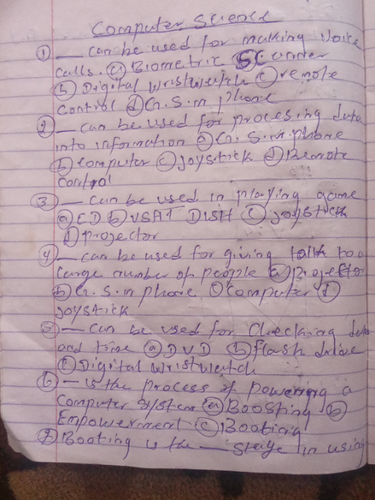 Computer Science
① — can be used for making voice
calls. ⓐ Biometric Scanner
ⓑ Digital Wristwatch ⓒ remote
control ⓓ G.S.m phone
② — can be used for procesing data
into information ⓐ G.S.m phone
ⓑ computer ⓒ joystick ⓓ Remote
control
③ — can be used in playing game
ⓐ CD ⓑ VSAT DISH ⓒ joystick
ⓓ projector
④ — can be used for giving talk to a
large number of people ⓐ Projector
ⓑ G.S.m phone ⓒ Computer ⓓ
Joystick
5 — can be used for checking date
and time ⓐ DVD ⓑ flash drive
ⓒ Digital Wristwatch
⑥ — is the process of powering a
Computer system ⓐ Boosting ⓑ
Empowerment ⓒ Booting
⑦ Booting is the — stage in using